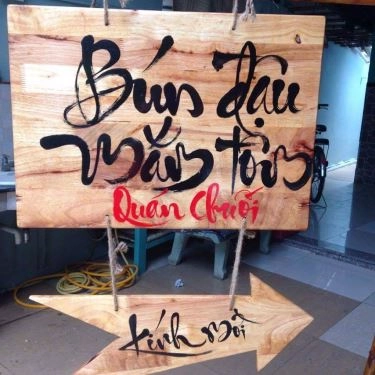 Bún đậu
mắm tôm
Quan Chuối
kính mời